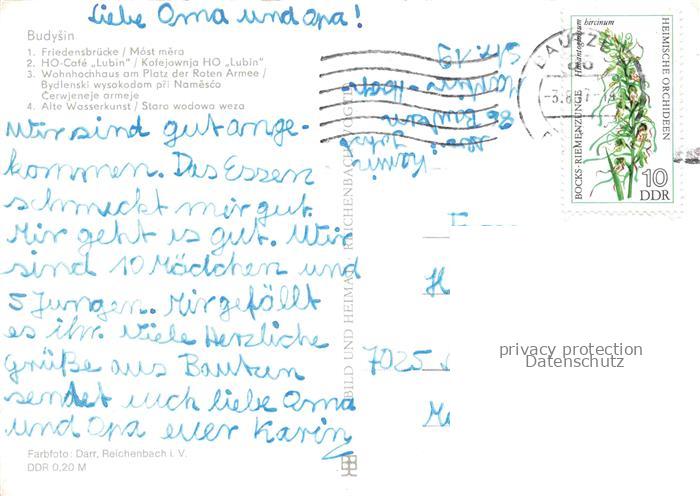 Liebe Oma und Opa!
Budyšin
1. Friedensbrücke / Móst měra
2. HO-Café „Lubin“ / Kofejownja HO „Lubin“
3. Wohnhochhaus am Platz der Roten Armee /
Bydlenski wysokodom při Naměsćo
Čerwjeneje armeje
4. Alte Wasserkunst / Stara wodowa weza
Wir sind gut ange-
kommen. Das Essen
schmeckt mir gut.
Mir geht is gut. Wir
sind 10 Mädchen und
5 Jungen. Mir gefällt
es ihr. Viele Herzliche
grüße aus Bautzen
sendet euch liebe Oma
und Opa euer Karin
Farbfoto: Darr, Reichenbach i. V.
DDR 0,20 M
BILD UND HEIMAT REICHENBACH
Karin
86 Bautzen
Str. 19
BOCKS-RIEMENZUNGE Himantoglossum hircinum
HEIMISCHE ORCHIDEEN
10
DDR
7025
privacy protection
Datenschutz